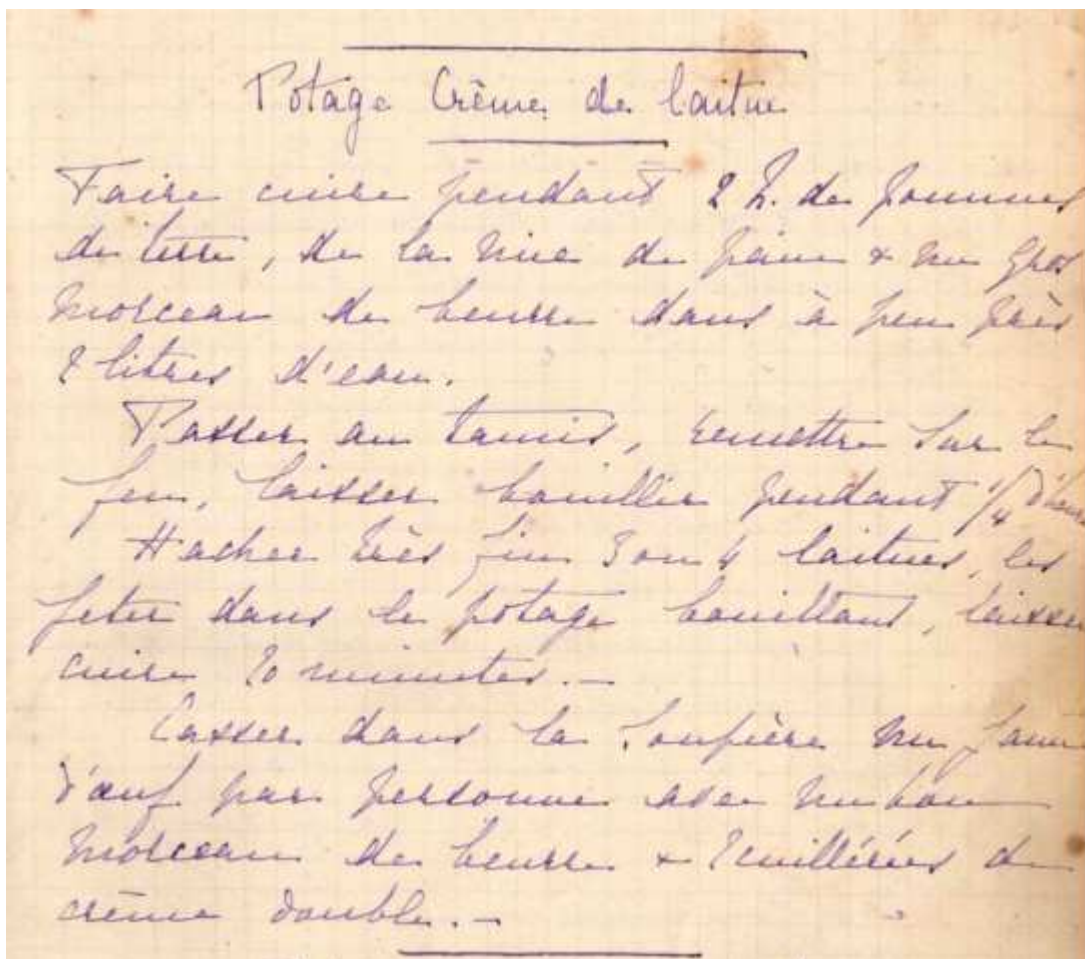 Potage Crème de laitue
Faire cuire pendant 2 h. de pommes
de terre, de la mie de pain & un gros
morceau de beurre dans à peu près
2 litres d'eau.
Passer au tamis, remettre sur le
feu, laisser bouillir pendant 1/4 d'heure
Hacher très fin 3 ou 4 laitues, les
jeter dans le potage bouillant, laisser
cuire 20 minutes.–
Casser dans la soupière un jaune
d'œuf par personne avec un bon
morceau de beurre & 2 cuillérées de
crème double.–